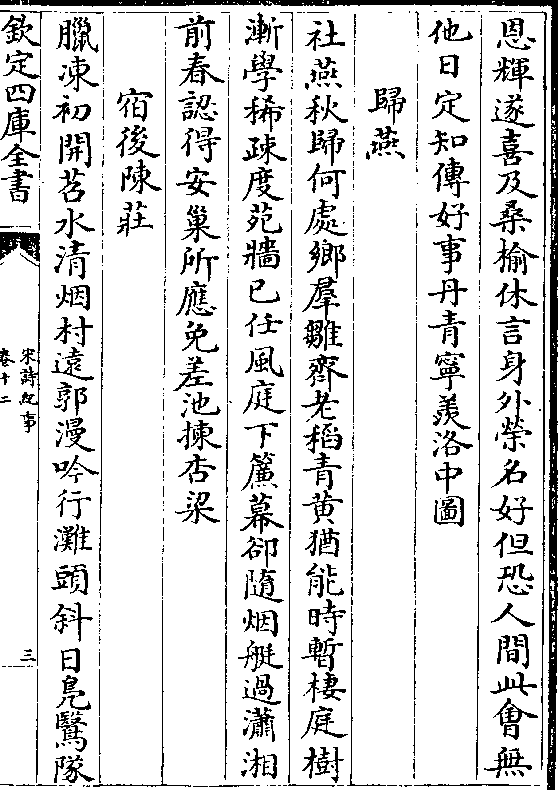 恩輝遂喜及桑榆休言身外榮名好但恐人間此會無
他日定知傳好事丹青寧羨洛中圖
歸燕
社燕秋歸何處鄉羣雛齊老稻青黃猶能時暫棲庭樹
漸學稀疎度苑牆已任風庭下簾幕卻隨烟艇過瀟湘
前春認得安巢所應免差池揀杏梁
宿後陳莊
臘凍初開苕水清烟村遠郭漫吟行灘頭斜日鳧鷖隊
欽定四庫全書
宋詩紀事
卷十二
三